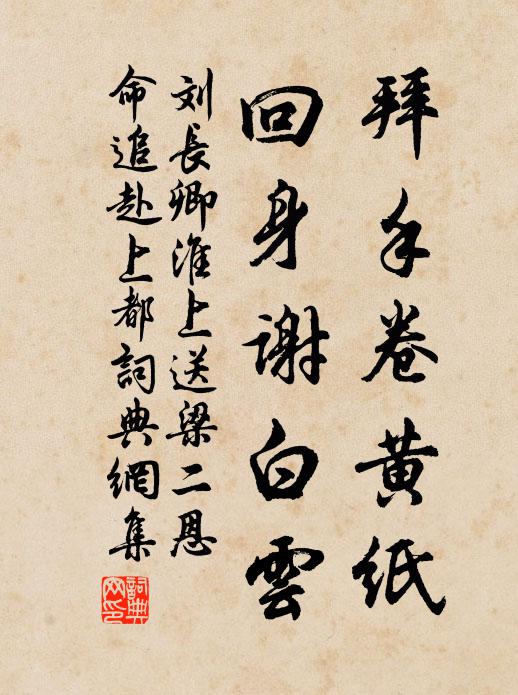 拜手卷黄紙
回身謝白雲
刘長卿淮上送梁二恩
命追赴上都詞典網集
詞典网印